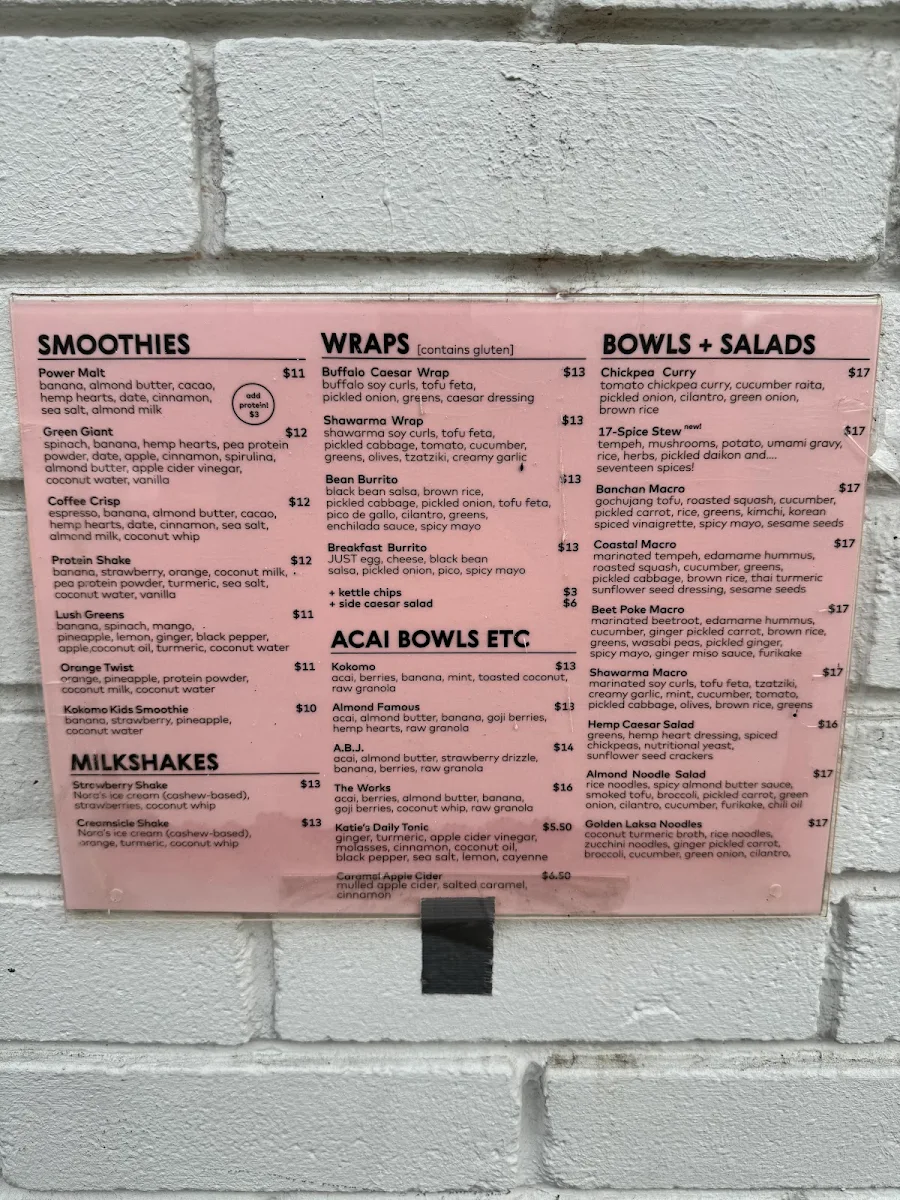 SMOOTHIES
Power Malt $11
banana, almond butter, cacao,
hemp hearts, date, cinnamon,
sea salt, almond milk
add
protein!
$3
Green Giant $12
spinach, banana, hemp hearts, pea protein
powder, date, apple, cinnamon, spirulina,
almond butter, apple cider vinegar,
coconut water, vanilla
Coffee Crisp $12
espresso, banana, almond butter, cacao,
hemp hearts, date, cinnamon, sea salt,
almond milk, coconut whip
Protein Shake $12
banana, strawberry, orange, coconut milk,
pea protein powder, turmeric, sea salt,
coconut water, vanilla
Lush Greens $11
banana, spinach, mango,
pineapple, lemon, ginger, black pepper,
apple,coconut oil, turmeric, coconut water
Orange Twist $11
orange, pineapple, protein powder,
coconut milk, coconut water
Kokomo Kids Smoothie $10
banana, strawberry, pineapple,
coconut water
MILKSHAKES
Strawberry Shake $13
Nora's ice cream (cashew-based),
strawberries, coconut whip
Creamsicle Shake $13
Nora's ice cream (cashew-based),
orange, turmeric, coconut whip
WRAPS [contains gluten]
Buffalo Caesar Wrap $13
buffalo soy curls, tofu feta,
pickled onion, greens, caesar dressing
Shawarma Wrap $13
shawarma soy curls, tofu feta,
pickled cabbage, tomato, cucumber,
greens, olives, tzatziki, creamy garlic
Bean Burrito $13
black bean salsa, brown rice,
pickled cabbage, pickled onion, tofu feta,
pico de gallo, cilantro, greens,
enchilada sauce, spicy mayo
Breakfast Burrito $13
JUST egg, cheese, black bean
salsa, pickled onion, pico, spicy mayo
+ kettle chips $3
+ side caesar salad $6
ACAI BOWLS ETC
Kokomo $13
acai, berries, banana, mint, toasted coconut,
raw granola
Almond Famous $13
acai, almond butter, banana, goji berries,
hemp hearts, raw granola
A.B.J. $14
acai, almond butter, strawberry drizzle,
banana, berries, raw granola
The Works $16
acai, berries, almond butter, banana,
goji berries, coconut whip, raw granola
Katie's Daily Tonic $5.50
ginger, turmeric, apple cider vinegar,
molasses, cinnamon, coconut oil,
black pepper, sea salt, lemon, cayenne
Caramel Apple Cider $6.50
mulled apple cider, salted caramel,
cinnamon
BOWLS + SALADS
Chickpea Curry $17
tomato chickpea curry, cucumber raita,
pickled onion, cilantro, green onion,
brown rice
17-Spice Stew new! $17
tempeh, mushrooms, potato, umami gravy,
rice, herbs, pickled daikon and....
seventeen spices!
Banchan Macro $17
gochujang tofu, roasted squash, cucumber,
pickled carrot, rice, greens, kimchi, korean
spiced vinaigrette, spicy mayo, sesame seeds
Coastal Macro $17
marinated tempeh, edamame hummus,
roasted squash, cucumber, greens,
pickled cabbage, brown rice, thai turmeric
sunflower seed dressing, sesame seeds
Beet Poke Macro $17
marinated beetroot, edamame hummus,
cucumber, ginger pickled carrot, brown rice,
greens, wasabi peas, pickled ginger,
spicy mayo, ginger miso sauce, furikake
Shawarma Macro $17
marinated soy curls, tofu feta, tzatziki,
creamy garlic, mint, cucumber, tomato,
pickled cabbage, olives, brown rice, greens
Hemp Caesar Salad $16
greens, hemp heart dressing, spiced
chickpeas, nutritional yeast,
sunflower seed crackers
Almond Noodle Salad $17
rice noodles, spicy almond butter sauce,
smoked tofu, broccoli, pickled carrot, green
onion, cilantro, cucumber, furikake, chili oil
Golden Laksa Noodles $17
coconut turmeric broth, rice noodles,
zucchini noodles, ginger pickled carrot,
broccoli, cucumber, green onion, cilantro,